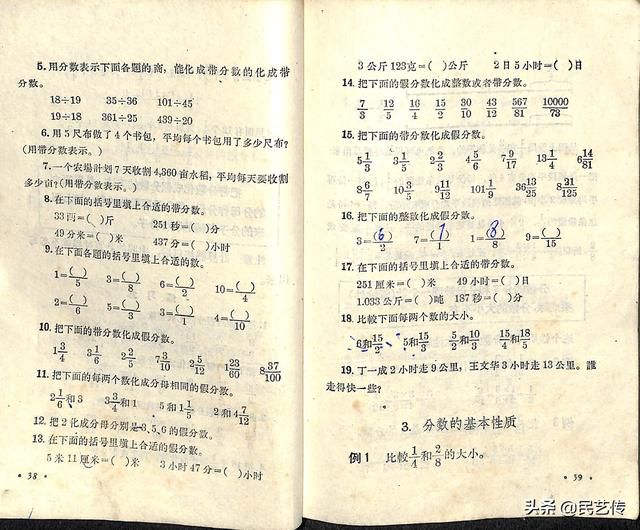 5. 用分数表示下面各题的商，能化成带分数的化成带
分数。
18÷19 35÷36 101÷45
19÷18 361÷25 439÷20
6. 用5尺布做了4个书包，平均每个书包用了多少尺布？
(用带分数表示。)
7. 一个农場計划7天收割4,360亩水稻，平均每天要收割
多少亩？(用带分数表示。)
8. 在下面的括号里填上合适的带分数。
33两=( )斤 251秒=( )分
49分米=( )米 437分=( )小时
9. 在下面各题的括号里填上合适的数。
1=( )/5 3=( )/8 6=( )/2 10=( )/4
2=( )/6 5=( )/3 3=( )/1 4=( )/10
10. 把下面的带分数化成假分数。
1 3/4 3 1/6 2 2/5 7 3/10 2 5/12 1 23/60 8 37/100
11. 把下面的每两个数化成分母相同的假分数。
2 1/6和3 3 3/4和1 5和1 1/5 2和4 7/12
12. 把2化成分母分别是3、5、6的假分数。
13. 在下面的括号里填上合适的带分数。
5米11厘米=( )米 3小时47分=( )小时
· 38 ·
3公斤123克=( )公斤 2日5小时=( )日
14. 把下面的假分数化成整数或者带分数。
7/3 12/5 16/4 15/2 30/10 43/12 567/81 10000/73
15. 把下面的带分数化成假分数。
5 1/3 3 1/5 2 2/3 4 5/6 7 9/17 13 1/4 6 14/81
8 6/7 10 3/5 9 11/12 101 1/9 36 13/25 8 21/125
16. 把下面的整数化成假分数。
3=(6)/2 7=(7)/1 1=(8)/8 9=( )/15
17. 在下面的括号里填上合适的带分数。
251厘米=( )米 49小时=( )日
1,033公斤=( )吨 187秒=( )分
18. 比較下面每两个数的大小。
6和15/2 5和15/3 5/2和10/3 15/5和18/5
19. 丁一成2小时走9公里，王文华3小时走13公里。誰
走得快一些？
3. 分数的基本性质
例1 比較1/4和2/8的大小。
· 39 ·
头条 @民艺传